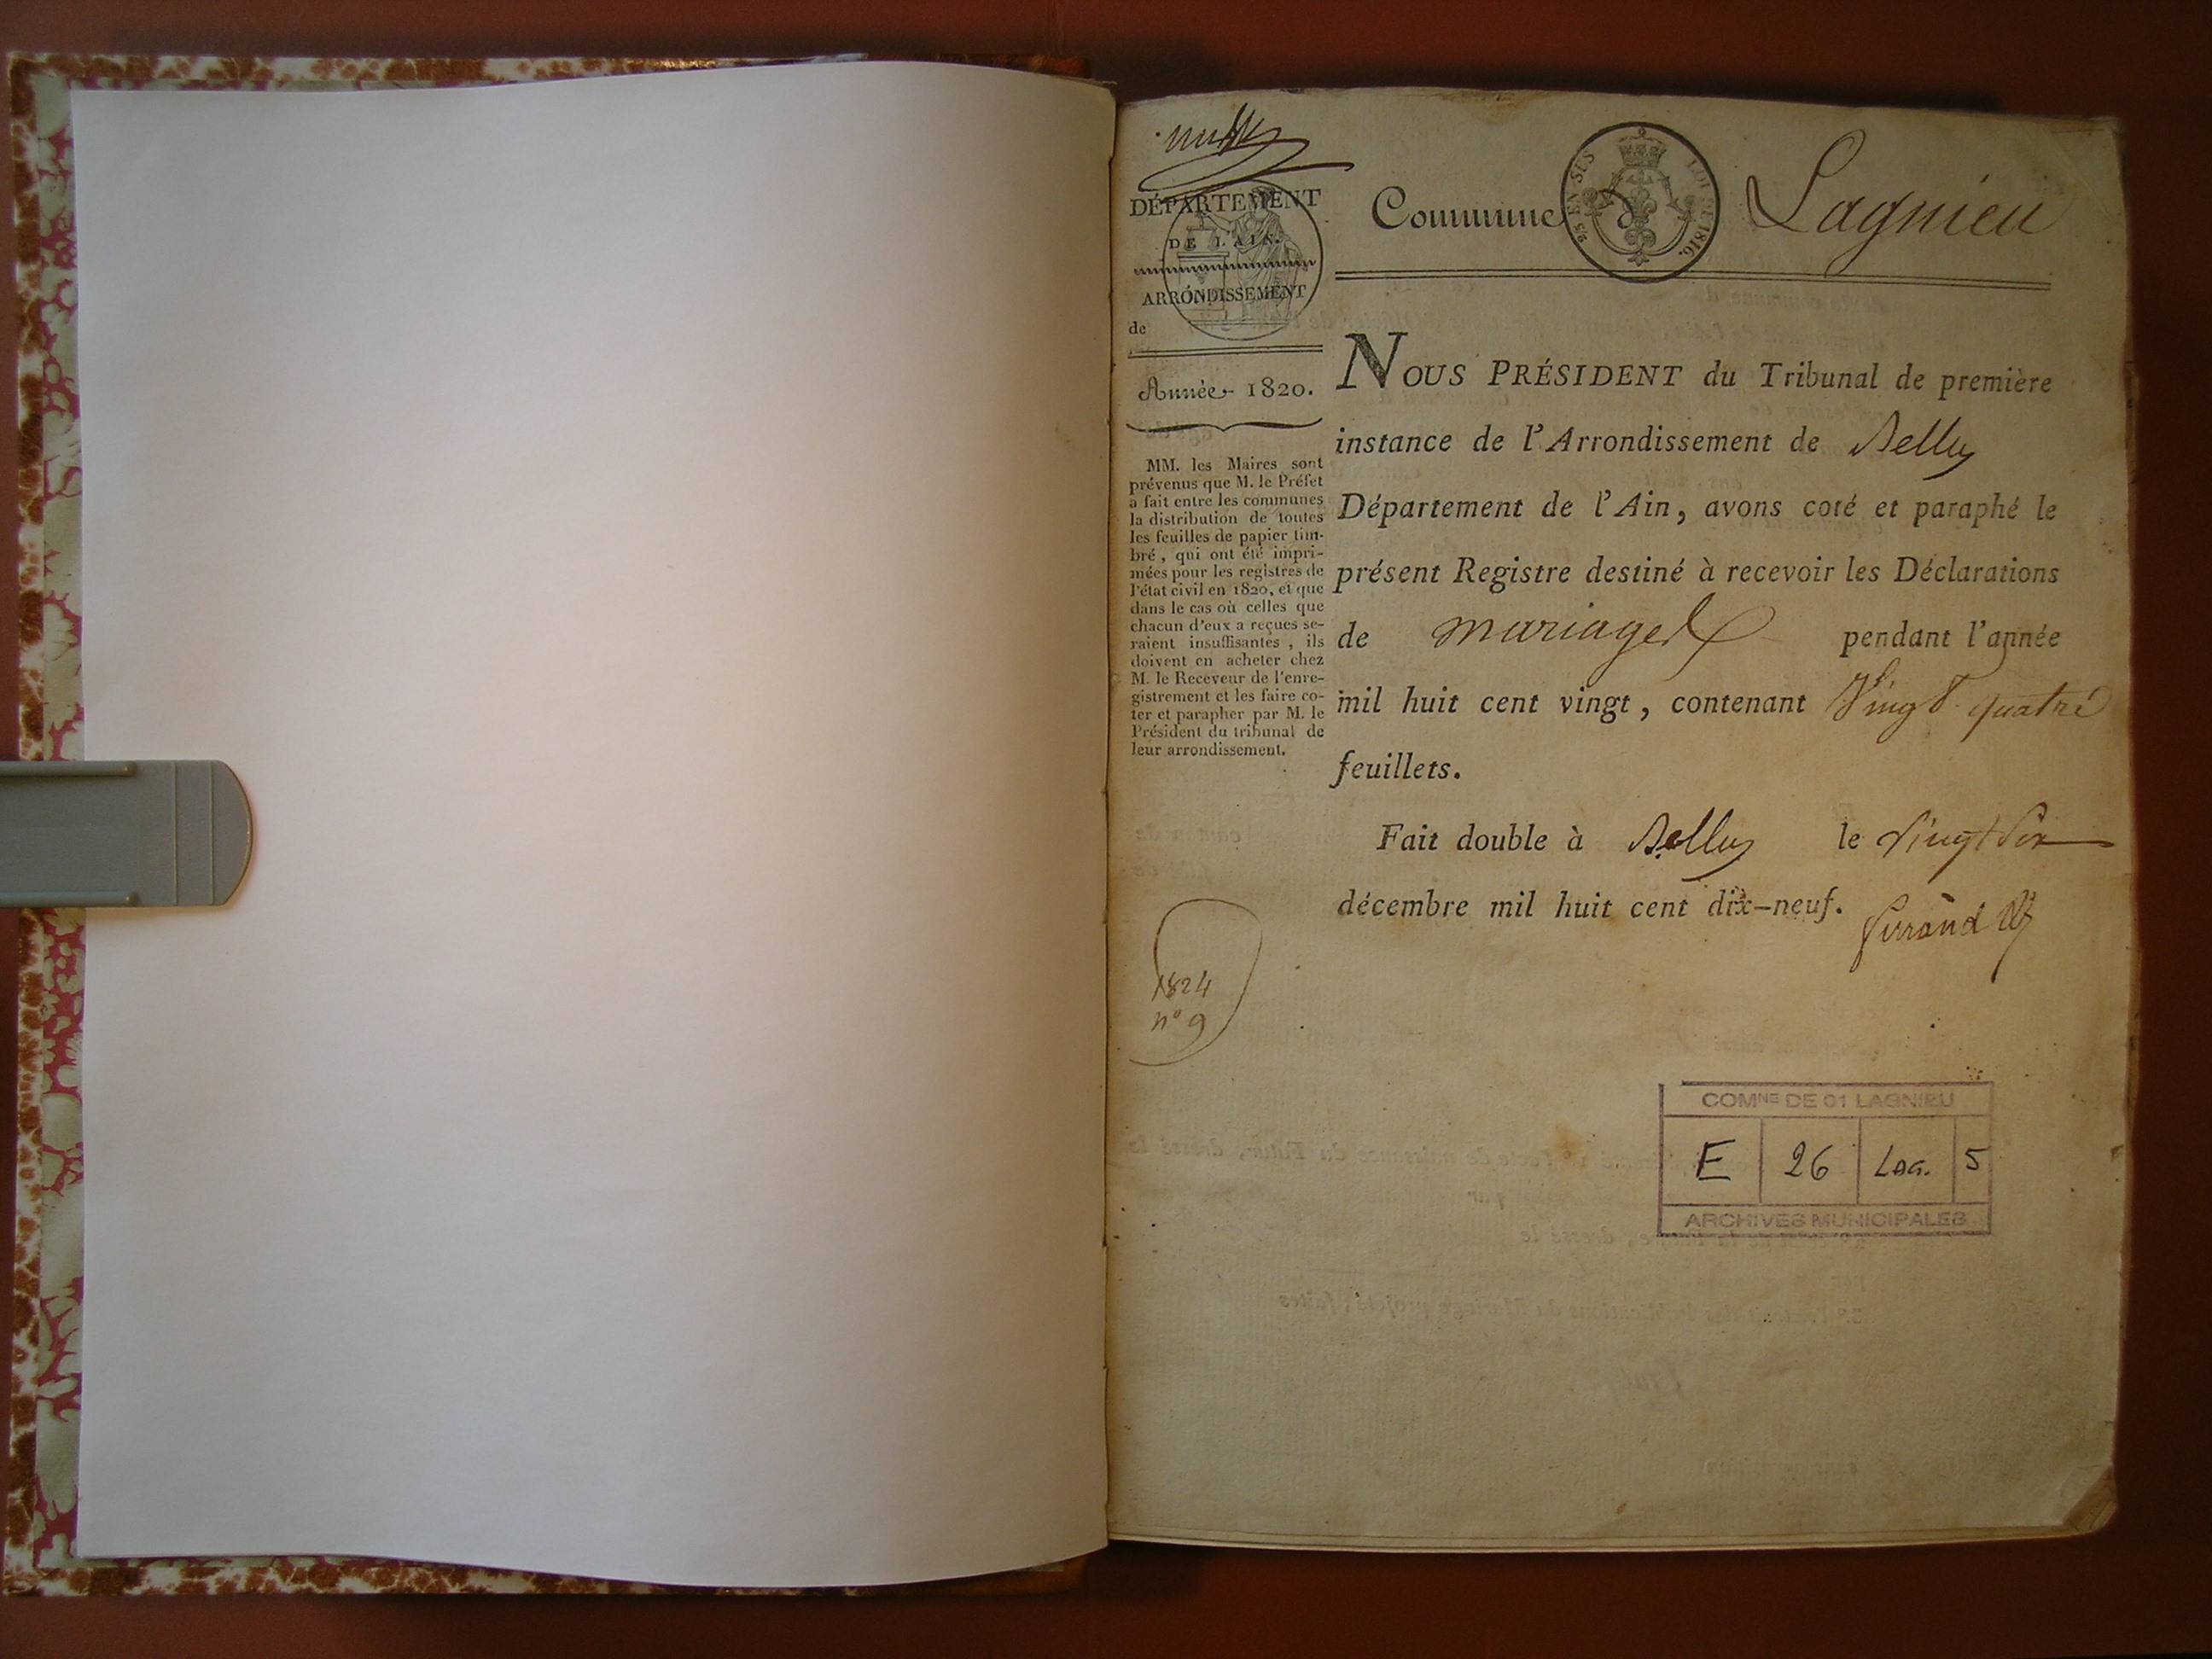 DÉPARTEMENT
DE L'AIN.
ARRONDISSEMENT
de
Année 1820.
MM. les Maires sont
prévenus que M. le Préfet
a fait entre les communes
la distribution de toutes
les feuilles de papier tim-
bré, qui ont été impri-
mées pour les registres de
l'état civil en 1820, et que
dans le cas où celles que
chacun d'eux a reçues se-
raient insuffisantes, ils
doivent en acheter chez
M. le Receveur de l'enre-
gistrement et les faire co-
ter et parapher par M. le
Président du tribunal de
leur arrondissement.
1824
n° 9
Commune de Lagnieu
EN SUS
LOI DE 1816.
NOUS PRÉSIDENT du Tribunal de première
instance de l'Arrondissement de Belley
Département de l'Ain, avons coté et paraphé le
présent Registre destiné à recevoir les Déclarations
de mariages pendant l'année
mil huit cent vingt, contenant Vingt quatre
feuillets.
Fait double à Belley le vingt six
décembre mil huit cent dix-neuf.
COMNE DE 01 LAGNIEU
E 26 LAG. 5
ARCHIVES MUNICIPALES